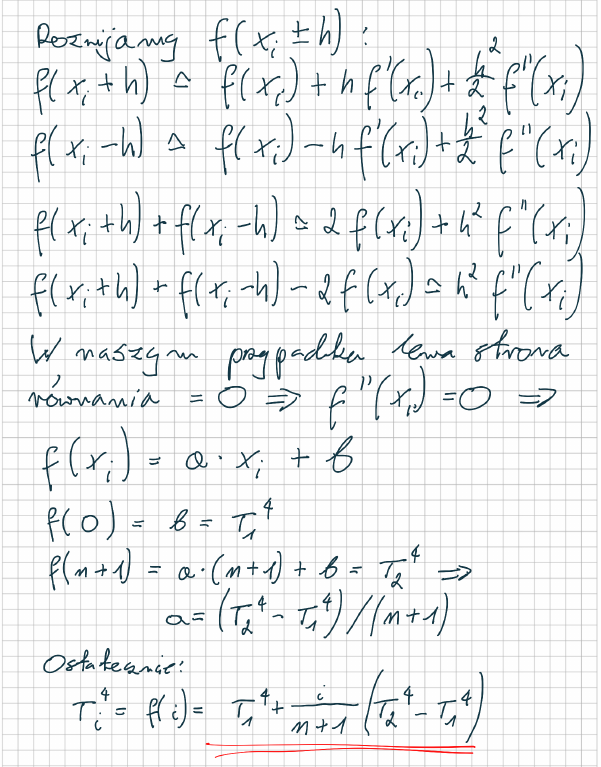 Rozwijamy f(x_i ± h):
f(x_i + h) ≃ f(x_i) + h f'(x_i) + h²/2 f''(x_i)
f(x_i − h) ≃ f(x_i) − h f'(x_i) + h²/2 f''(x_i)
f(x_i + h) + f(x_i − h) ≃ 2 f(x_i) + h² f''(x_i)
f(x_i + h) + f(x_i − h) − 2 f(x_i) ≃ h² f''(x_i)
W naszym przypadku lewa strona
równania = 0 ⇒ f''(x_i) = 0 ⇒
f(x_i) = a · x_i + b
f(0) = b = T₁⁴
f(n+1) = a·(n+1) + b = T₂⁴ ⇒
a = (T₂⁴ − T₁⁴)/(n+1)
Ostatecznie:
T_i⁴ = f(i) = T₁⁴ + i/(n+1) (T₂⁴ − T₁⁴)